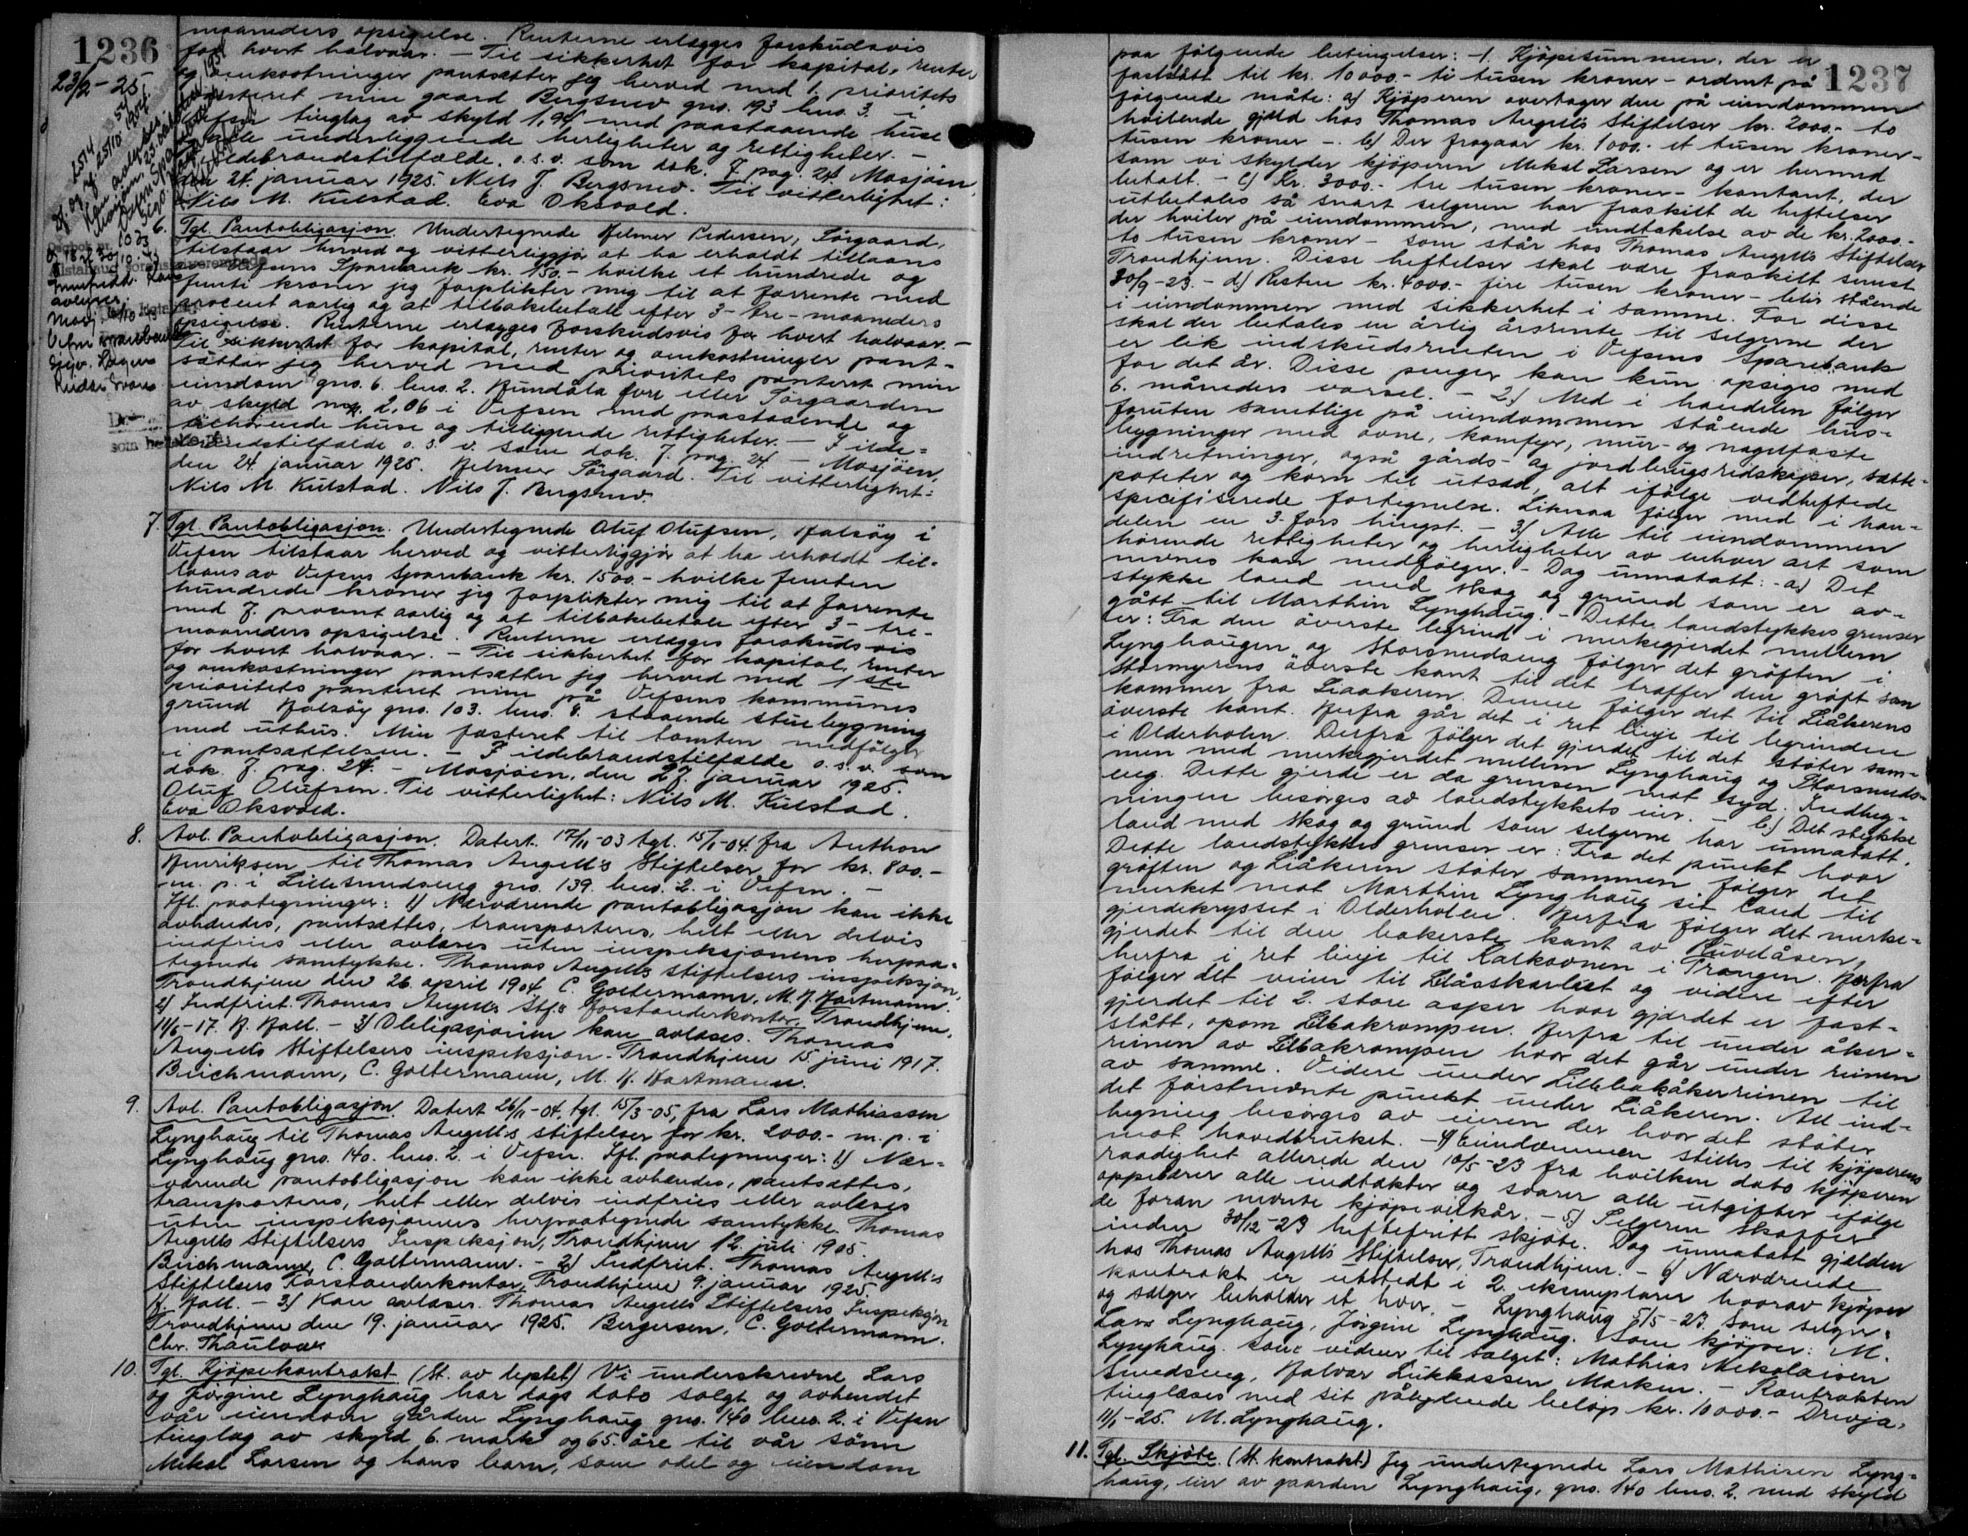 1236
23/2-25
maaneders opsigelse. Renterne erlegges forskudsvis
for hvert halvaar. - Til sikkerhet for kapital, renter
og omkostninger pantsætter jeg herved med 1. prioritets
panteret min gaard Bergsnev gno. 193 bno. 3. i
Vefsn tinglag av skyld 1,94 med paastaaende huse
underliggende herligheter og rettigheter. -
I ildebrandstilfælde o.s.v. som dok. 7. pag. 24 Mosjøen,
den 24. januar 1925. Nils J. Bergsnev. Til vitterlighet:
Nils M. Kulstad. Eva Oksvold.
6. Tgl. Pantobligasjon. Undertegnede Helmer Pedersen, Sørgaard,
tilstaar herved og vitterliggjør at ha erholdt tillaans
av Vefsens Sparebank kr. 150.- hvilke et hundrede og
femti kroner jeg forplikter mig til at forrente med
procent aarlig og at tilbakebetale efter 3- tre- maaneders
opsigelse. Renterne erlegges forskudsvis for hvert halvaar. -
Til sikkerhet for kapital, renter og omkostninger pant-
sætter jeg herved med prioritets panteret min
eiendom gno. 6. bno. 2. Hundåla øvre eller Sørgaarden
av skyld mrk. 2,06 i Vefsen med paastaaende og
tilhørende huse og tilliggende rettigheter. - I ilde-
brandstilfælde o.s.v. som dok. 7. pag. 24 - Mosjøen,
den 24. januar 1925. Helmer Sørgaard. Til vitterlighet:
Nils M. Kulstad. Nils J. Bergsnev.
7. Tgl. Pantobligasjon. Undertegnede Oluf Olufsen, Halsøy i
Vefsn tilstaar herved og vitterliggjør at ha erholdt til-
laans av Vefsens Sparebank kr. 1500.- hvilke femten
hundrede kroner jeg forplikter mig til at forrente
med 7. procent aarlig og at tilbakebetale efter 3- tre-
maaneders opsigelse. Renterne erlegges forskudsvis
for hvert halvaar. - Til sikkerhet for kapital, renter
og omkostninger pantsætter jeg herved med 1ste
prioritets panteret min på Vefsens kommunes
grund Halsøy gno. 103. bno. 8. staaende stuebygning
med uthus. Min festeret til tomten medfølger
i pantsættelsen. - I ildebrandstilfælde o.s.v. som
dok. 7. pag. 24. - Mosjøen, den 27. januar 1925.
Oluf Olufsen. Til vitterlighet: Nils M. Kulstad.
Eva Oksvold.
8. Avl. Pantobligasjon. Datert 17/11-03 tgl. 15/1-04 fra Anthon
Henriksen til Thomas Angells Stiftelser for kr. 800.-
m. p. i Lillesmedseng gno. 139. bno. 2. i Vefsn. -
Ifl. paategninger: 1) Nærværende pantobligasjon kan ikke
avhændes, pantsættes, transporteres, helt eller delvis
indfries eller avlæses uten inspeksjonens herpaa-
tegnede samtykke. Thomas Angells Stiftelsers inspeksjon,
Trondhjem den 26. april 1904 C. Goltermann, M. H. Hartmann.
2) Indfriet. Thomas Angells Stf.s Forstanderkontor, Trondhjem,
11/6-17. H. Hall. - 3) Obligasjonen kan avlæses. Thomas
Angells Stiftelsers inspeksjon. Trondhjem 15. juni 1917.
Buchmann, C. Goltermann, M. H. Hartmann.
9. Avl. Pantobligasjon. Datert 26/11-04, tgl. 15/3-05, fra Lars Mathiassen
Lynghaug til Thomas Angells stiftelser for kr. 2000.- m.p. i
Lynghaug gno. 140. bno. 2. i Vefsn. Ifl. paategninger: 1) Nær-
værende pantobligasjon kan ikke avhendes, pantsættes,
transporteres, helt eller delvis indfries eller avlæses
uten inspeksjonens herpaategnede samtykke Thomas
Angells Stiftelsers Inspeksjon, Trondhjem 12. juli 1905.
Buchmann, C. Goltermann. - 2) Indfriet. Thomas Angells
Stiftelsers Forstanderkontor, Trondhjem 9. januar 1925.
H. Hall. - 3) Kan avlæses. Thomas Angells Stiftelsers Inspeksjon
Trondhjem den 19. januar 1925. Bergersen. C. Goltermann.
Chr. Thaulow
10. Tgl. Kjøpekontrakt (St. av leplet) Vi underskrevne Lars
og Jørgine Lynghaug har dags dato solgt og avhendet
vår eiendom gården Lynghaug gno. 140 bno. 2. i Vefsn
tinglag av skyld 6. mark og 65. øre til vår sønn
Mikal Larsen og hans barn, som odel og eiendom
1237
paa følgende betingelser: - 1. Kjøpesummen, der er
fastsatt til kr. 10000.- ti tusen kroner - ordnet på
følgende måte: a) Kjøperen overtager den på eiendommen
hvilende gjeld hos Thomas Angells Stiftelser kr. 2000.- to
tusen kroner -. b) Der fragaar kr. 1000.- et tusen kroner -
som vi skylder kjøperen Mikal Larsen og er hermed
betalt. - c) Kr. 3000.- tre tusen kroner - kontant, der
utbetales så snart selgeren har fraskilt de heftelser
der hviler på eiendommen, med undtakelse av de kr. 2000.-
to tusen kroner - som står hos Thomas Angells Stiftelser
Trondhjem. Disse heftelser skal være fraskilt senest
30/9-23. - d) Resten kr. 4000.- fire tusen kroner - blir stående
i eiendommen med sikkerhet i samme. For disse
skal der betales en årlig årsrente til selgerne der
er lik indskudsrenten i Vefsens Sparebank
for det år. Disse penger kan kun opsiges med
6. måneders varsel. - 2) Med i handelen følger
foruten samtlige på eiendommen stående hus-
bygninger med ovne, komfyr, mur- og nagelfaste
indretninger, også gårds- og jordbrugsredskaper, sætte-
poteter og korn til utsæd, alt ifølge vedheftede
spesifiserede fortegnelse. Likesaa følger med i han-
delen en 3-førs hingst. - 3) Alle til eiendommen
hørende rettigheter og herligheter av enhver art som
nevnes kan medfølger. - Dog unnatatt: - a) Det
stykke land med skog og grund som er av-
gått til Marthin Lynghaug. - Dette landstykkes grenser
er: Fra den øverste legrind i merkegjerdet mellem
Lynghaugen og Storsmedseng følger det grøften i
Stormyrens øverste kant til det træffer den grøft som
kommer fra Liaakeren. Denne følger det til Liåkerens
øverste kant. Herfra går det i ret linje til legrinden
i Olderholen. Derfra følger det gjerdet til det støter sam-
men med merkegjerdet mellem Lynghaug og Storsmeds-
eng. Dette gjerde er da grensen mot syd. Indheg-
ningen besørges av landstykkets eier. - b) Det stykke
land med skog og grund som selgerne har unnatatt.
Dette landstykkes grenser er: Fra det punkt hvor
grøften og Liåkeren støter sammen følger det
merket mot Marthin Lynghaug sit land til
gjerdekrysset i Olderholen. Herfra følger det merke-
gjerdet til den bakerste kant av Puvdåsen,
herfra i ret linje til Kalkovnen i Trangen. Herfra
følger det veien til Blåsskarleet og videre efter
gjerdet til 2. store asper hvor gjerdet er fast-
slått, opom Lilbakrompen. Herfra til under åker-
reinen av Lilbakrompen hvor det går under reinen
av samme. Videre under Lillebakåkerreinen til
det førstnevnte punkt under Liåkeren. All ind-
hegning besørges av eieren der hvor det støter
mot hovedbruket. - 4) Eiendommen stilles til kjøperens
raadighet allerede den 10/5-23 fra hvilken dato kjøperen
oppebærer alle indtækter og svarer alle utgifter ifølge
de foran nevnte kjøpevilkår. - 5) Selgeren skaffer
inden 30/12-23 heftefritt skjøte. Dog unnatatt gjælden
hos Thomas Angells Stiftelser, Trondhjem. - 6) Nærværende
kontrakt er utstedt i 2. eksemplarer hvorav kjøper
og sælger beholder et hver. - Lynghaug 5/5-23. Som selger:
Lars Lynghaug, Jørgine Lynghaug. Som kjøper: M.
Lynghaug. Som vidner til salget: Mathias Nikolaisen
Smedseng, Halvar Lukkassen Marken. - Kontrakten
tinglæses med sit pålydende beløp kr. 10000.- Drevja,
11/1-25. M. Lynghaug.
11. Tgl. Skjøte. (St. kontrakt.) Jeg undertegnede Lars Mathisen Lyng-
haug, eier av gaarden Lynghaug, gno. 140 bno. 2. med skyld